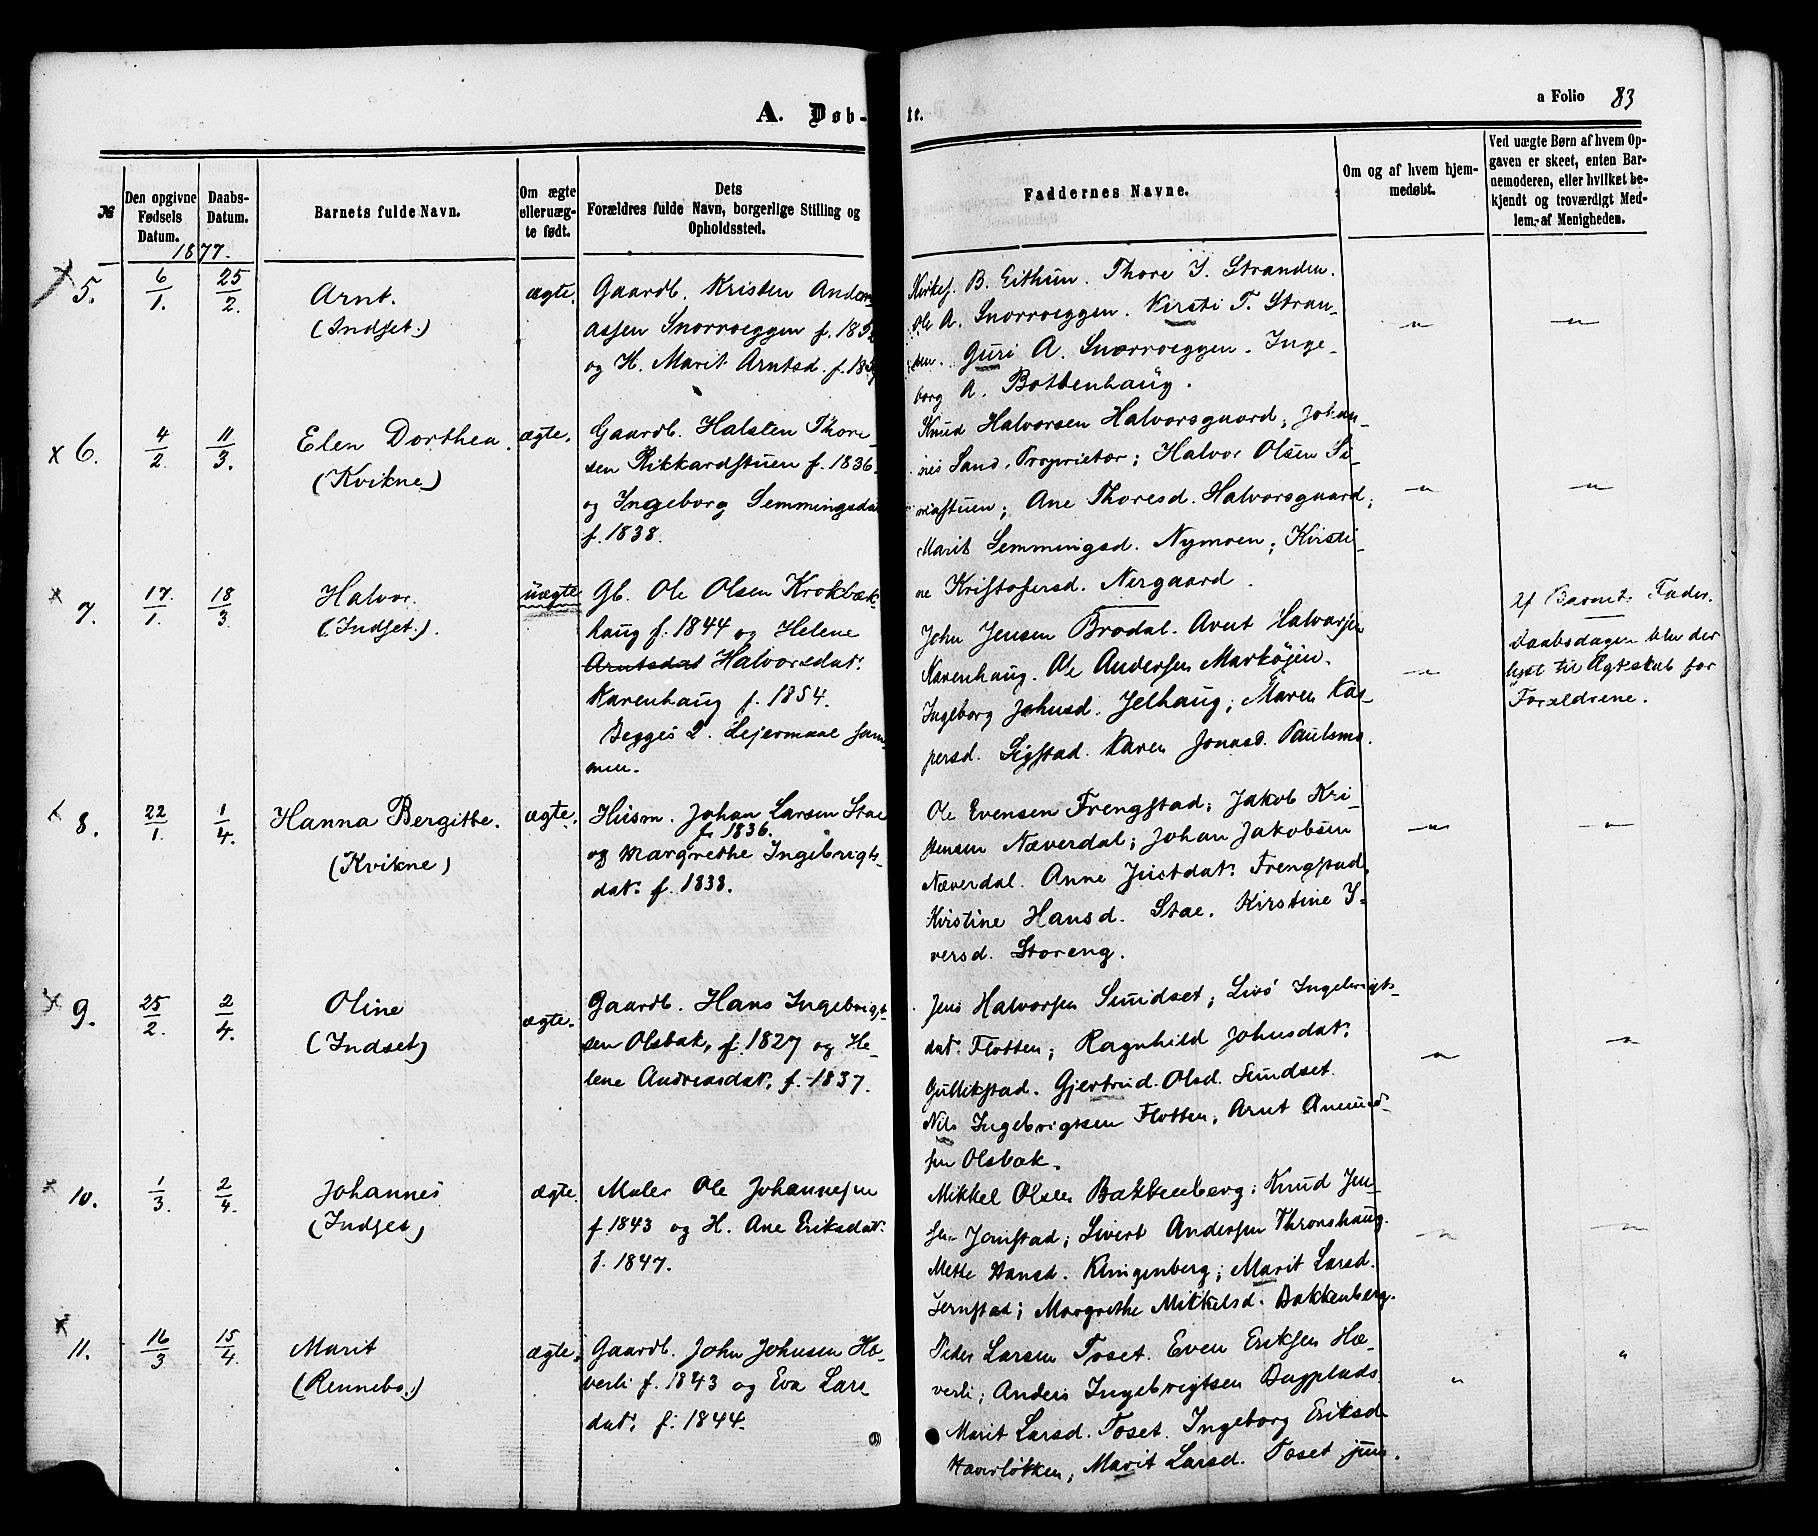 A. Døb-
te.
a Folio 83
№
Den opgivne Fødsels Datum.
Daabs-Datum.
Barnets fulde Navn.
Om ægte elleruæg-te født.
Dets Forældres fulde Navn, borgerlige Stilling og Opholdssted.
Faddernes Navne.
Om og af hvem hjem-medøbt.
Ved uægte Børn af hvem Op-gaven er skeet, enten Bar-nemoderen, eller hvilket be-kjendt og troværdigt Med-lem af Menigheden.
1877.
5.
6/1.
25/2.
Arnt.
(Indset.)
ægte.
Gaardb. Kristen Ander-
assen Snorroeggen f.
og H. Marit Arntsd. f.
Kirkes. B. Eithun. Thore I. Stranden.
Ole A. Snorroeggen. Kirsti T. Stran-
den. Guri A. Snorroeggen. Inge-
borg A. Bottenhaug.
"
"
6.
4/2.
11/3.
Elen Dorthea.
(Kvikne)
ægte.
Gaardb. Halsten Thore-
sen Rikkardstuen f. 1836.
og Ingeborg Semmingsdat
f. 1838.
Knud Halvorsen Halvorsgaard; Johan-
nes Sand, Proprietær; Halvor Olsen Si-
mastuen; Ane Thoresd. Halvorsgaard;
Marit Semmingsd. Nymoen; Kirsti-
ne Kristofersd. Nergaard.
"
"
7.
17./1.
18/3.
Halvor.
(Indset.)
uægte
Gb. Ole Olsen Krokbæk-
haug f. 1844 og Helene
Arntsdat Halvorsdat.
Kavenhaug f. 1854.
Begges 2. Lejermaal sam-
men.
John Jensen Brodal. Arnt Halvorsen
Kavenhaug. Ole Andersen Markøjen.
Ingeborg Johnsd. Jelhaug; Maren Kas-
persd. Sigstad. Karen Jonasd. Paulsmo.
"
Af Barnets Fader.
Daabsdagen blev der
lyst til Ægteskab for
Forældrene.
8.
22/1.
1/4.
Hanna Bergitte.
(Kvikne)
ægte.
Husm. Johan Larsen Stae
f. 1836.
og Margrethe Ingebrigts-
dat. f. 1838.
Ole Evensen Frengstad; Jakob Kri-
stensen Næverdal; Johan Jakobsen
Næverdal. Anne Justdat. Frengstad,
Kirstine Hansd. Stae. Kirstine I-
versd. Storeng.
"
"
9.
25/2.
2/4.
Oline
(Indset)
ægte.
Gaardb. Hans Ingebrigt-
sen Olsbak, f. 1827 og He-
lene Andreasdat. f. 1837.
Jens Halvorsen Smidset; Livø Ingebrigts-
dat. Flotten; Ragnhild Johnsdat.
Gullikstad. Gjertrud Olsd. Smidset.
Nils Ingebrigtsen Flotten, Arnt Anemud-
sen Olsbak.
"
"
10.
1/3.
2/4.
Johannes
(Indset)
ægte.
Maler Ole Johannesen
f. 1843 og H. Ane Eriksdat.
f. 1847.
Mikkel Olsen Bakkenberg; Knud Jen-
sen Jernstad; Sivert Andersen Thronshaug.
Mette Hansd. Klingenberg; Marit Larsd.
Jernstad; Margrethe Mikkelsd. Bakkenberg.
"
"
11.
16/3
15/4
Marit
(Rennebo.)
ægte.
Gaardb. John Johnsen Hæ-
verli f. 1843 og Eva Lars
dat. f. 1844.
Peder Larsen Toset. Even Eriksen Hæ-
verli; Anders Ingebrigtsen Bagplads
Marit Larsd. Toset. Ingeborg Eriksd.
Haverløkken; Marit Larsd. Toset jun.
"
"